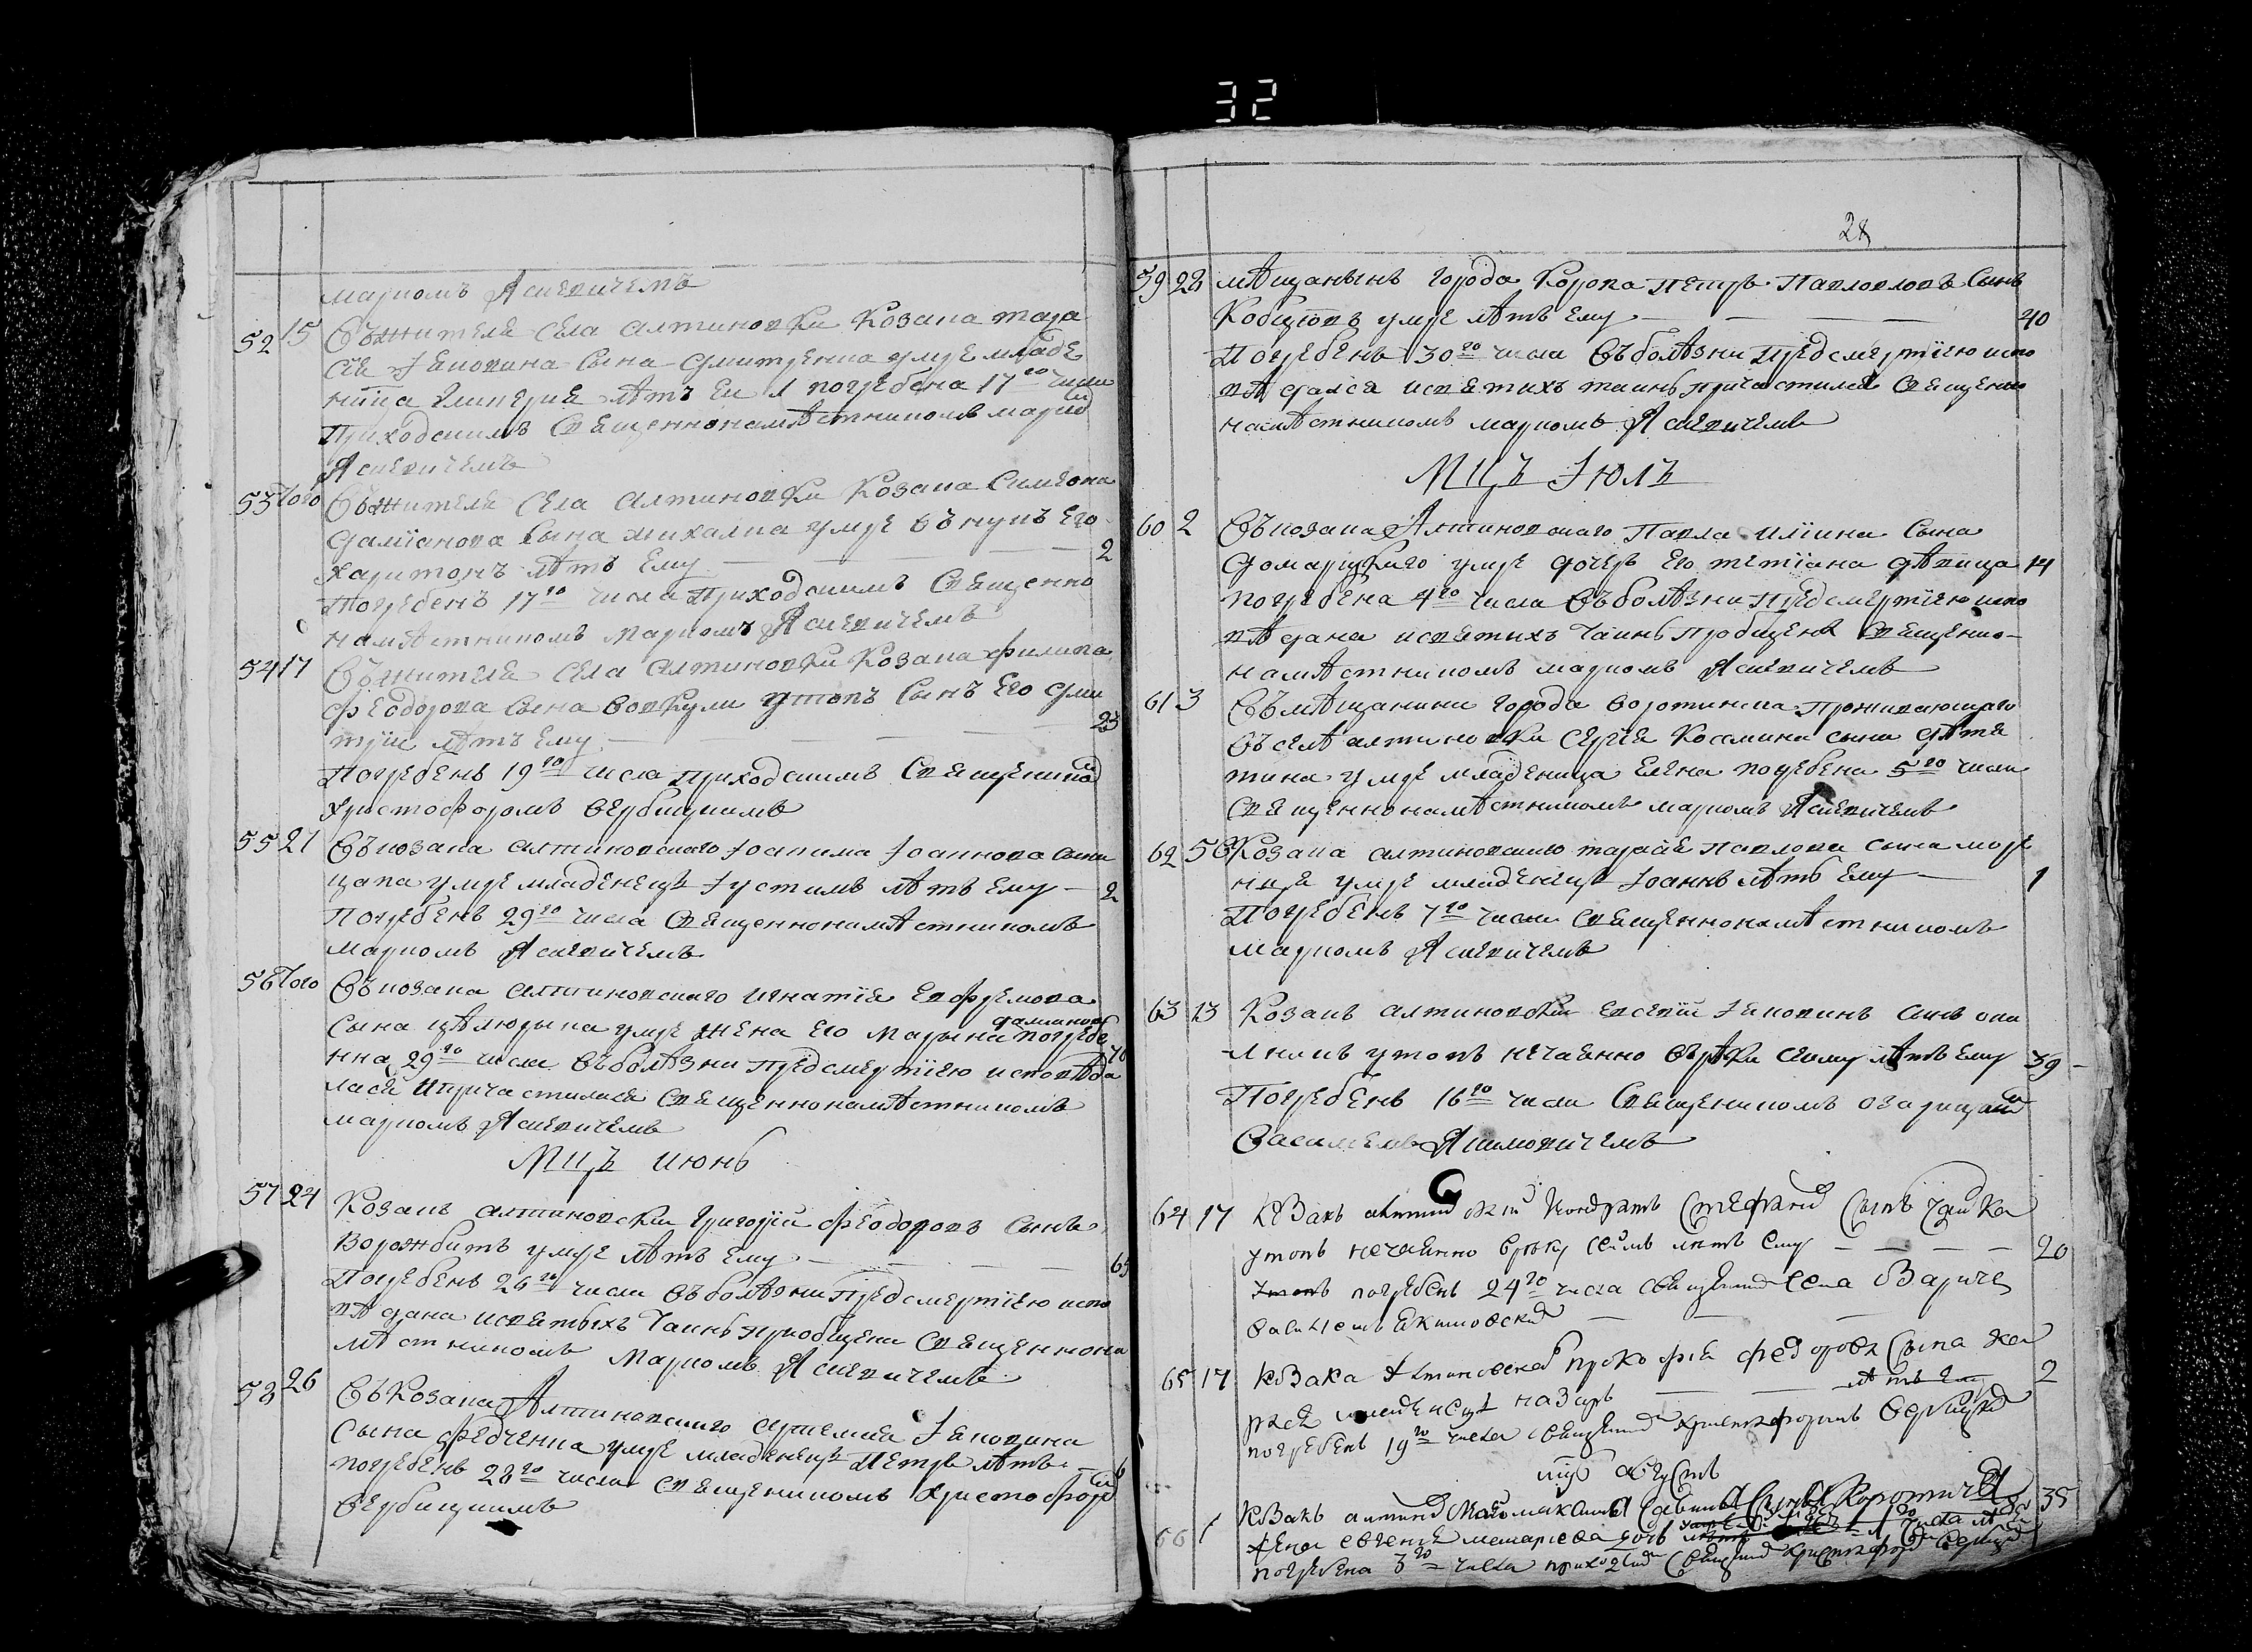 32
марком Ясневичемъ
52 15 Съ жителя села алтиновки козака тара
сія Іяковина сына дмитренка умре младе
ница Гликерия лѣтъ ей 1 погребена 17го числа
Приходскимъ Священнонамѣстникомъ марко
Ясневичемъ
53 того Съ жителя села алтиновки козака Симеона
даміанова сына михалка умре внукъ Его
харитонъ лѣтъ Ему — — 2
Погребенъ 17го числа Приходскимъ Священно
намѣстникомъ Маркомъ Ясневичемъ
54 17 Съ жителя села алтиновки козака филипа
Феодорова сына Вовкули утопъ сынъ Его дми
трій лѣтъ Ему — — — 23
Погребенъ 19го числа Приходскимъ Священико
Христофоромъ Вербицкимъ
55 21 Съ козака алтиновского Іоакима Іоаннова сына
цапа умре младенецъ Іустимъ лѣтъ Ему — 2
Погребенъ 29го числа Священнонамѣстникомъ
маркомъ Ясневичемъ
56 того Съ козака алтиновского игнатія Евфремова
сына цѣлюрыка умре жена Его Марына даміанова погребе
нна 29го числа въ болѣзни предсмертіею исповѣда
лася и причастилася Священнонамѣстникомъ
маркомъ Ясневичемъ
Мцъ июнь
57 24 Козакъ алтиновски Григорій Феодоровъ сынъ
Ворожбитъ умре лѣтъ ему — — — 65
Погребенъ 26го числа въ болѣзни предсмертіею испо
вѣдана исвятыхъ Таинъ приобщена Священнона
мѣстникомъ Маркомъ Ясневичемъ
58 26 Съ Козака Алтиновского артемия Іяковина
сына Федченка умре младенецъ Петръ лѣтъ —
погребенъ 28го числа Священикомъ Христофоро
Вербицкимъ
28
59 28 мѣщанынъ города Коропа Петръ Павловловъ сынъ
Кобцювъ умре лѣтъ Ему — — — 40
Погребенъ 30го числа въ болѣзни предсмертіею испо
вѣдался исвятихъ таинъ причастился Священно
намѣстникомъ маркомъ Ясневичемъ
Мцъ Іюль
60 2 Съ козака Алтиновского Павла иліина сына
домарцкого умре дочерь Его тетіана дѣвица 14
погребена 4го числа въ болѣзни предсмертіею испо
вѣдана исвятихъ Таинъ приобщена Священно-
намѣстникомъ маркомъ Ясневичемъ
61 3 Съ мѣщанина города Воротинска Проживающаго
въ селѣ алтиновки Сергія Космина сына дѣтя
тина умре младеница Елена погребена 5го числа
Священнонамѣстникомъ маркомъ Ясневичемъ
62 5 С Козака алтиновского тарасія Павлова сына
умре младенецъ Іоаннъ лѣтъ Ему — 1
Погребенъ 7го числа Священнонамѣстникомъ
маркомъ Ясневичемъ
63 13 Козакъ алтиновски Евсевій Іяковинъ сынъ
утопъ нечаянно врѣки сейму лѣтъ Ему 39 —
Погребенъ 16го числа Священикомъ
Василемъ Якимовичемъ
64 17 Козакъ Кондратъ Стефано сынъ чайка
утопъ нечаянно врѣку сеймъ лѣтъ Ему — — — 20
погребенъ 24го числа села
65 17 Козака Алтиновско прокофія Федорова сына
младенецъ назаръ — — лѣтъ Ему 2
погребенъ 19го числа Христофоромъ Вербицко
мцъ августъ
66 1 Козакъ 35
жена числа
погребена 3го числа приходско